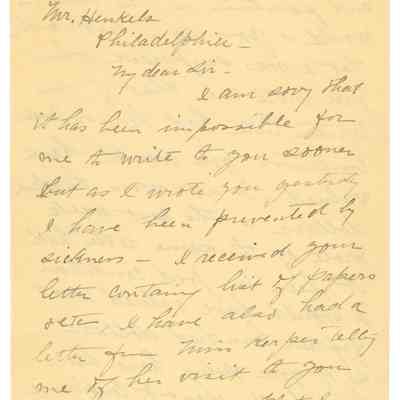 Mr. Henkels
Philadelphia -
My dear Sir -
I am sory that
it has been impossible for
me to write to you sooner
but as I wrote you yestidy
I have been prevented by
sickness - I received your
letter containg list of papers
&etc, I have also had a
letter from Miss telling
me of her visit to you
that